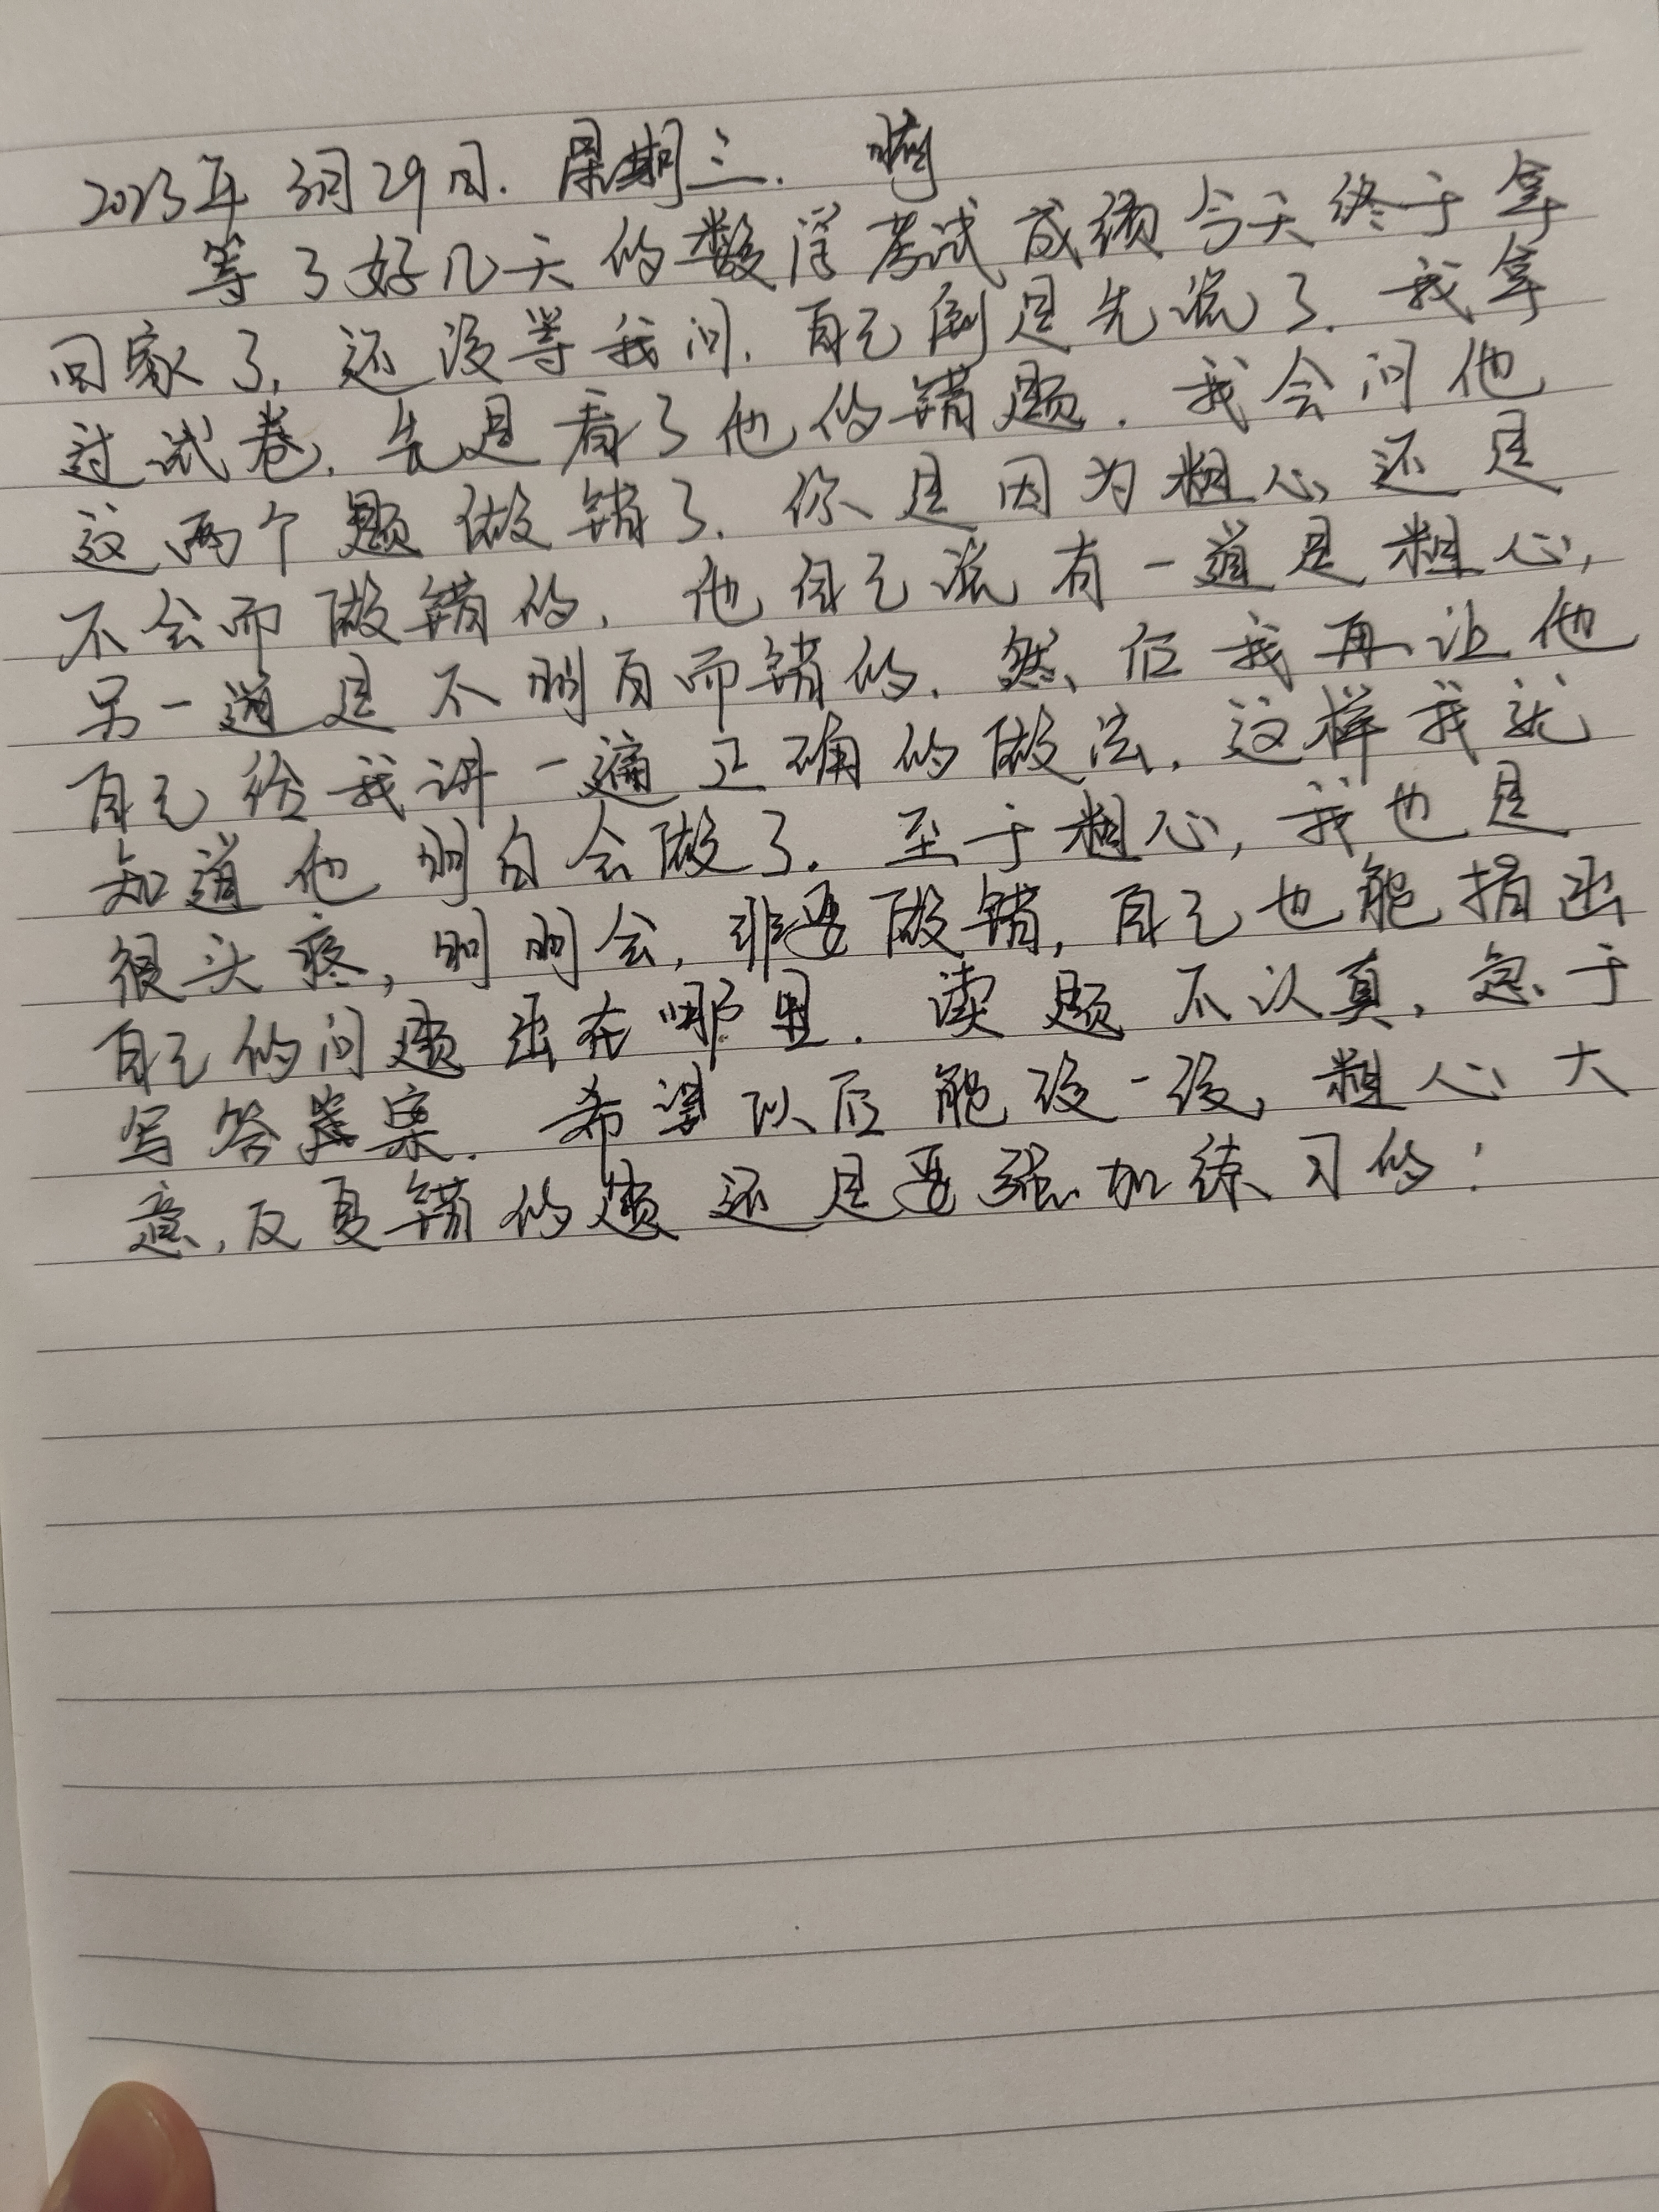 2023年3月29日. 星期三. 晴
等了好几天的数学考试成绩今天终于拿
回家了, 还没等我问. 自己倒是先说了. 我拿
过试卷. 先是看了他的错题. 我会问他
这两个题做错了. 你是因为粗心还是
不会而做错的. 他自己说有一道是粗心,
另一道是不明白而错的. 然后我再让他
自己给我讲一遍正确的做法. 这样我就
知道他明白会做了. 至于粗心, 我也是
很头疼, 明明会, 非要做错, 自己也能指出
自己的问题出在哪里. 读题不认真, 急于
写答案. 希望以后能改一改, 粗心大
意, 反复错的题还是要强加练习的!